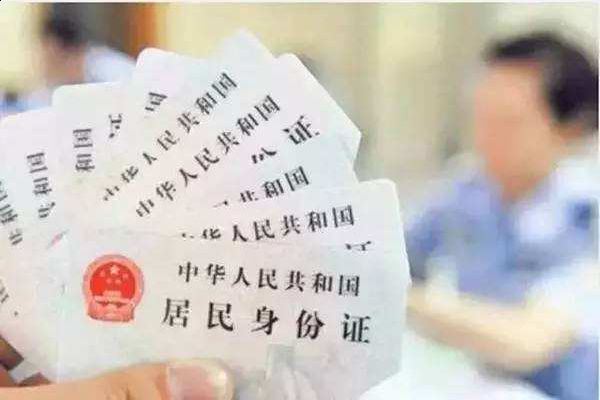 共和国
共和国
中华人民共和国
中华人民共和国
份证
共和国
华人民共和国
中华人民共和国
居民身份证